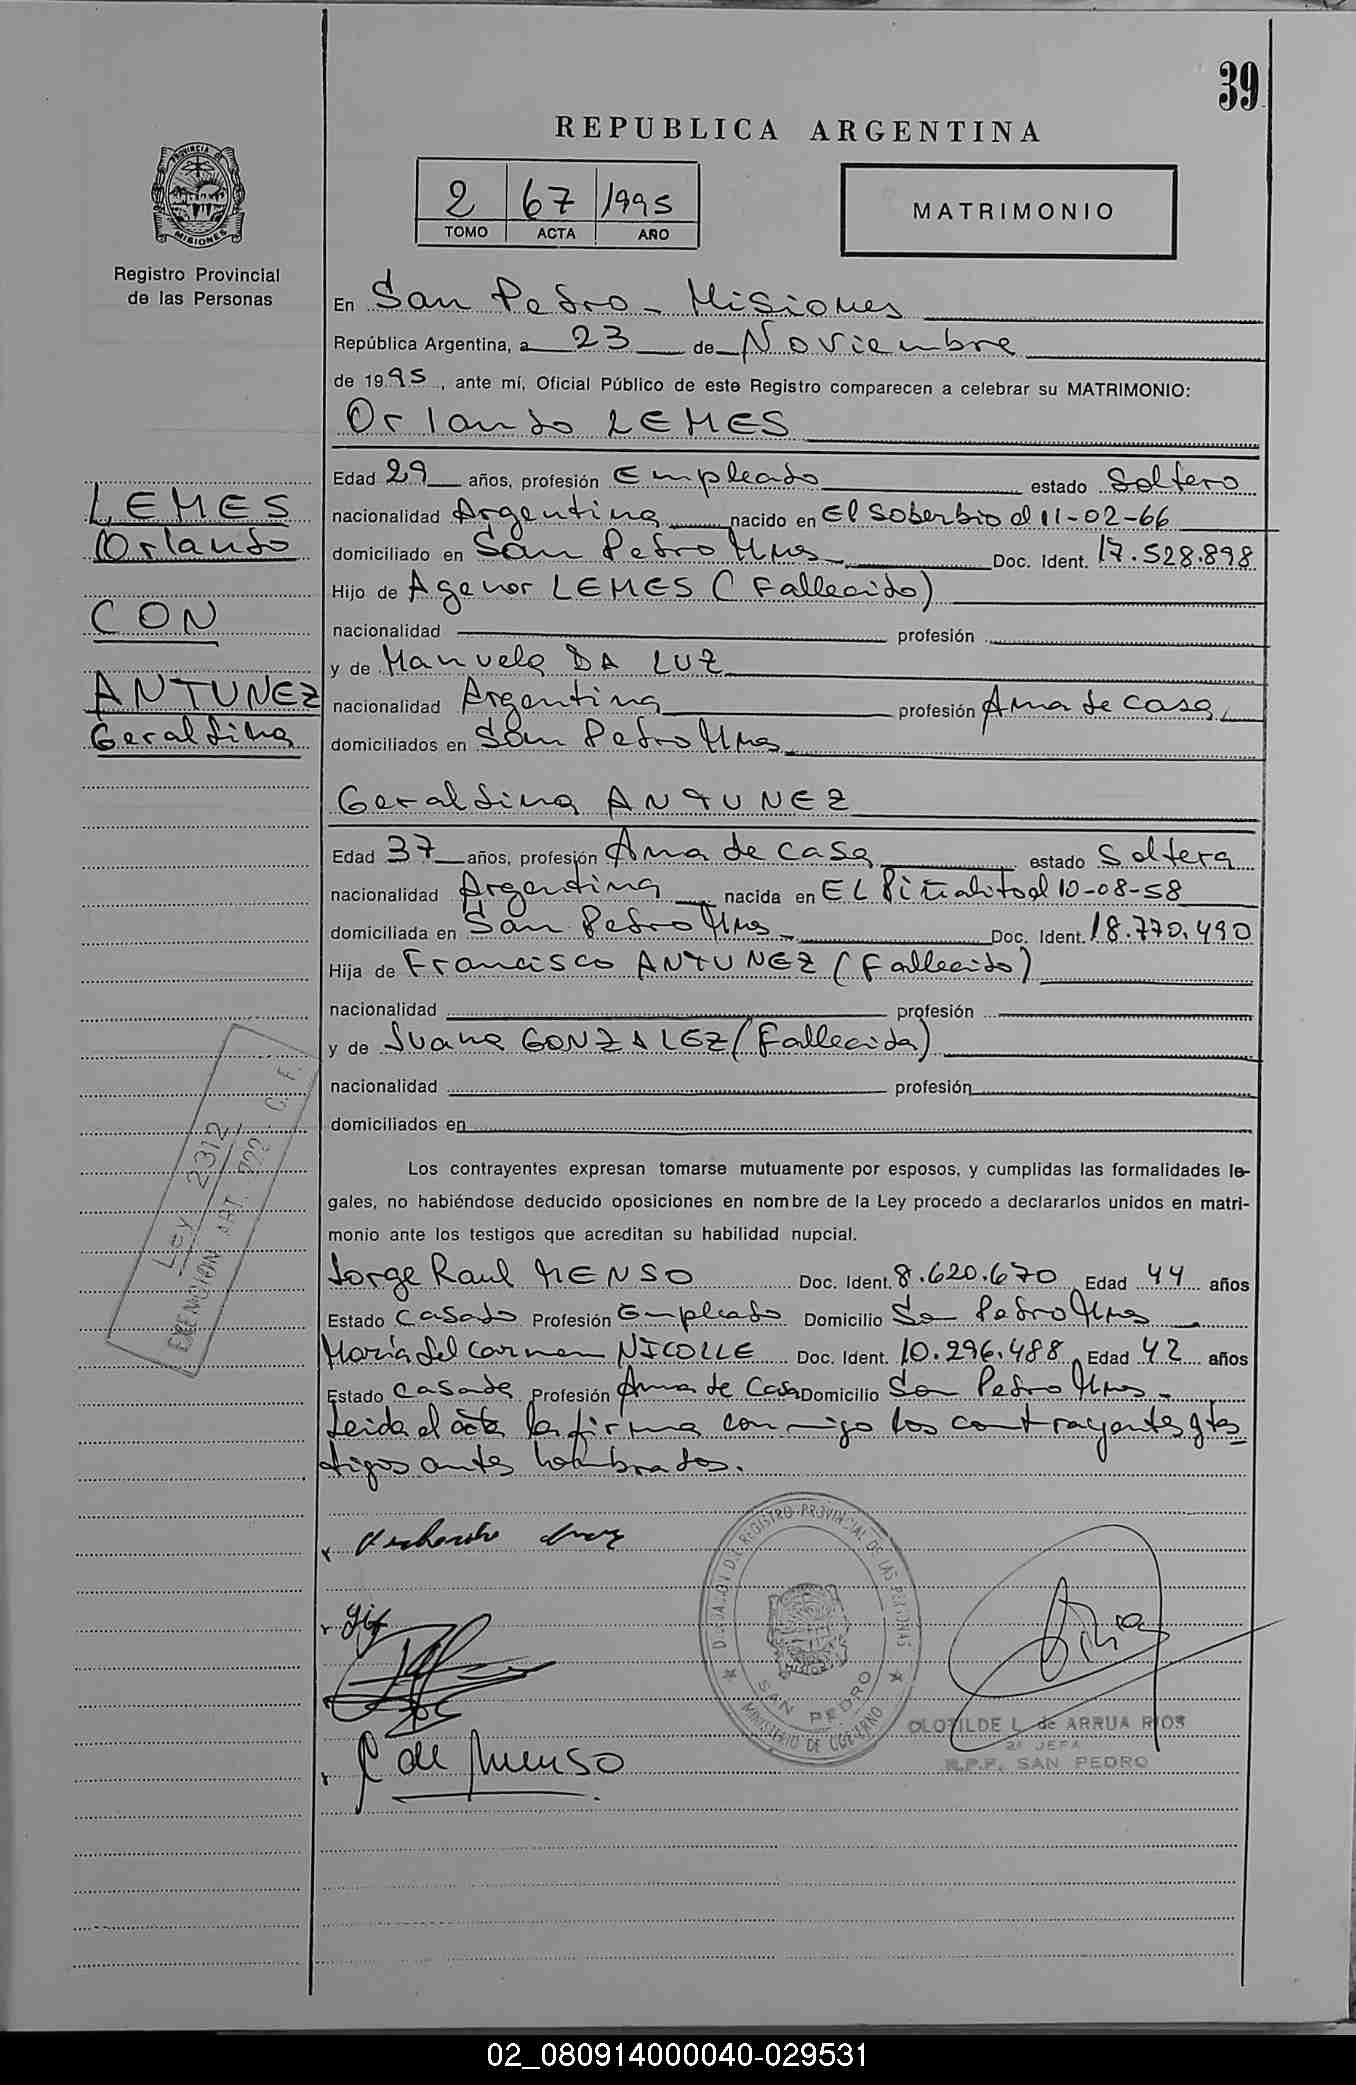 39
REPUBLICA ARGENTINA
PROVINCIA DE
MISIONES
Registro Provincial
de las Personas
2 67 1995
TOMO ACTA AÑO
MATRIMONIO
En San Pedro - Misiones
República Argentina, a 23 de Noviembre
de 1995, ante mí, Oficial Público de este Registro comparecen a celebrar su MATRIMONIO:
Orlando LEMES
Edad 29 años, profesión Empleado estado Soltero
nacionalidad Argentina nacido en El Soberbio el 11-02-66
domiciliado en San Pedro Mnes Doc. Ident. 17.528.898
Hijo de Agenor LEMES (Fallecido)
nacionalidad profesión
y de Manuela DA LUZ
nacionalidad Argentina profesión Ama de casa
domiciliados en San Pedro Mnes
LEMES
Orlando
CON
ANTUNEZ
Geraldina
Geraldina ANTUNEZ
Edad 37 años, profesión Ama de casa estado Soltera
nacionalidad Argentina nacida en EL Piñalito el 10-08-58
domiciliada en San Pedro Mnes Doc. Ident. 18.770.490
Hija de Francisco ANTUNEZ (Fallecido)
nacionalidad profesión
y de Juana GONZALEZ (Fallecida)
nacionalidad profesión
domiciliados en
LEY 2312
EXENCION ART. 222 C. F.
Los contrayentes expresan tomarse mutuamente por esposos, y cumplidas las formalidades le-
gales, no habiéndose deducido oposiciones en nombre de la Ley procedo a declararlos unidos en matri-
monio ante los testigos que acreditan su habilidad nupcial.
Jorge Raul MENSO Doc. Ident. 8.620.670 Edad 44 años
Estado Casado Profesión Empleado Domicilio San Pedro Mnes
María del Carmen NICOLLE Doc. Ident. 10.296.488 Edad 42 años
Estado Casada Profesión Ama de Casa Domicilio San Pedro Mnes
Leida el acta la firman conmigo los contrayentes y tes
tigos antes nombrados.
REGISTRO PROVINCIAL DE LAS PERSONAS
SAN PEDRO
MINISTERIO DE GOBIERNO
CLOTILDE L. de ARRUA RIOS
2ª JEFA
R.P.P. SAN PEDRO
de Menso
02_080914000040-029531